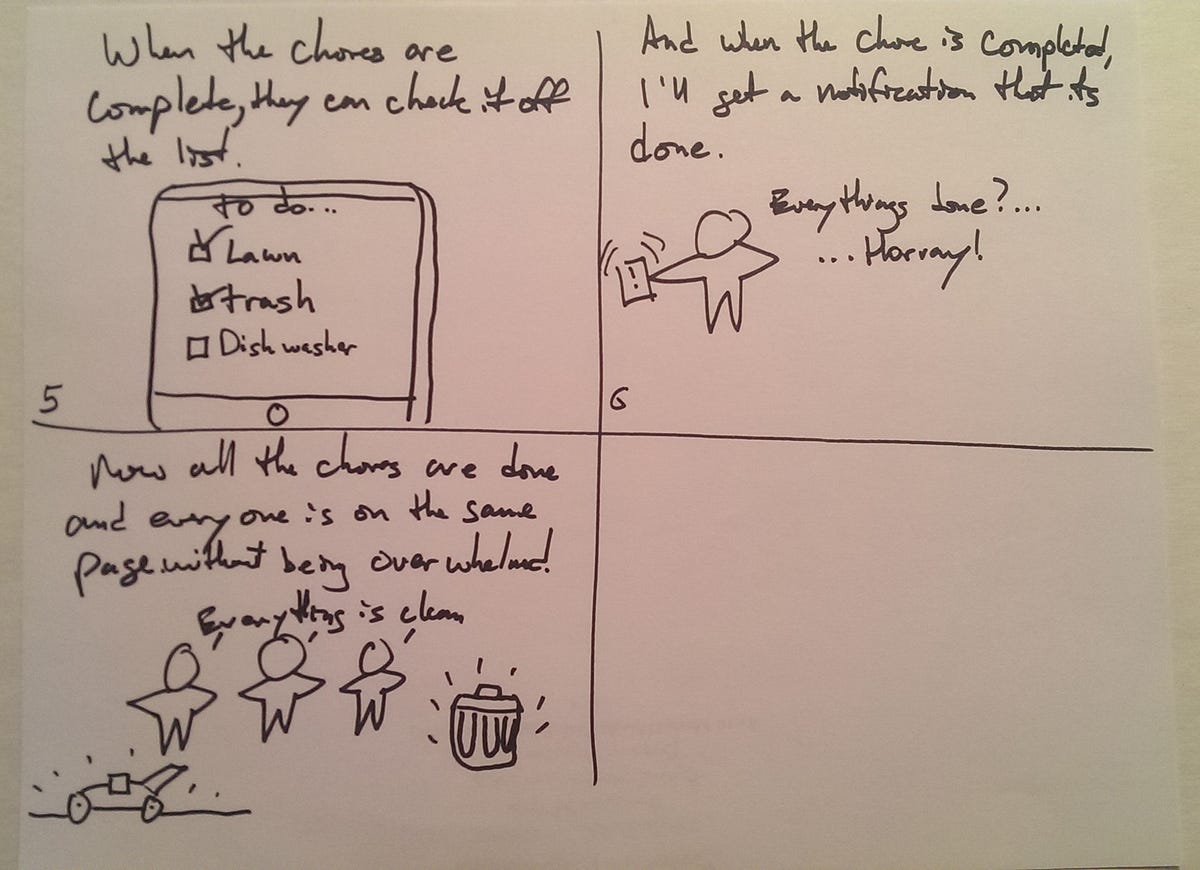 When the chores are
complete, they can check it off
the list.
To do...
Lawn
trash
Dishwasher
5
And when the chore is completed,
I'll get a notification that its
done.
Everythings done?...
...Horray!
!
6
Now all the chores are done
and everyone is on the same
page without being overwhelmed!
Everything is clean